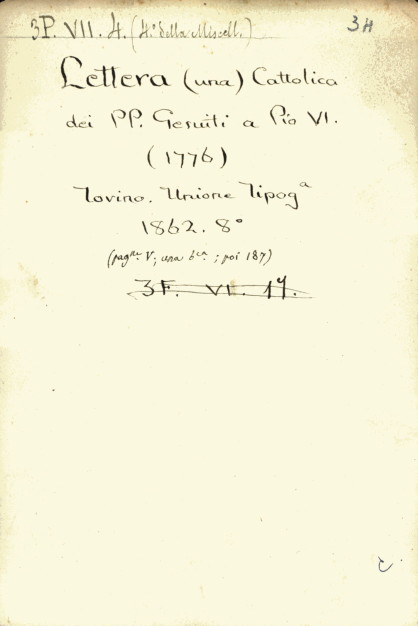 3P. VII. 4. (4.° della Miscell.)
34
Lettera (una) Cattolica
dei PP. Gesuiti a Pio VI.
(1776)
Torino. Unione Tipogª
1862. 8°
(pagne V; una bca; poi 187)
3F. VI. 19.